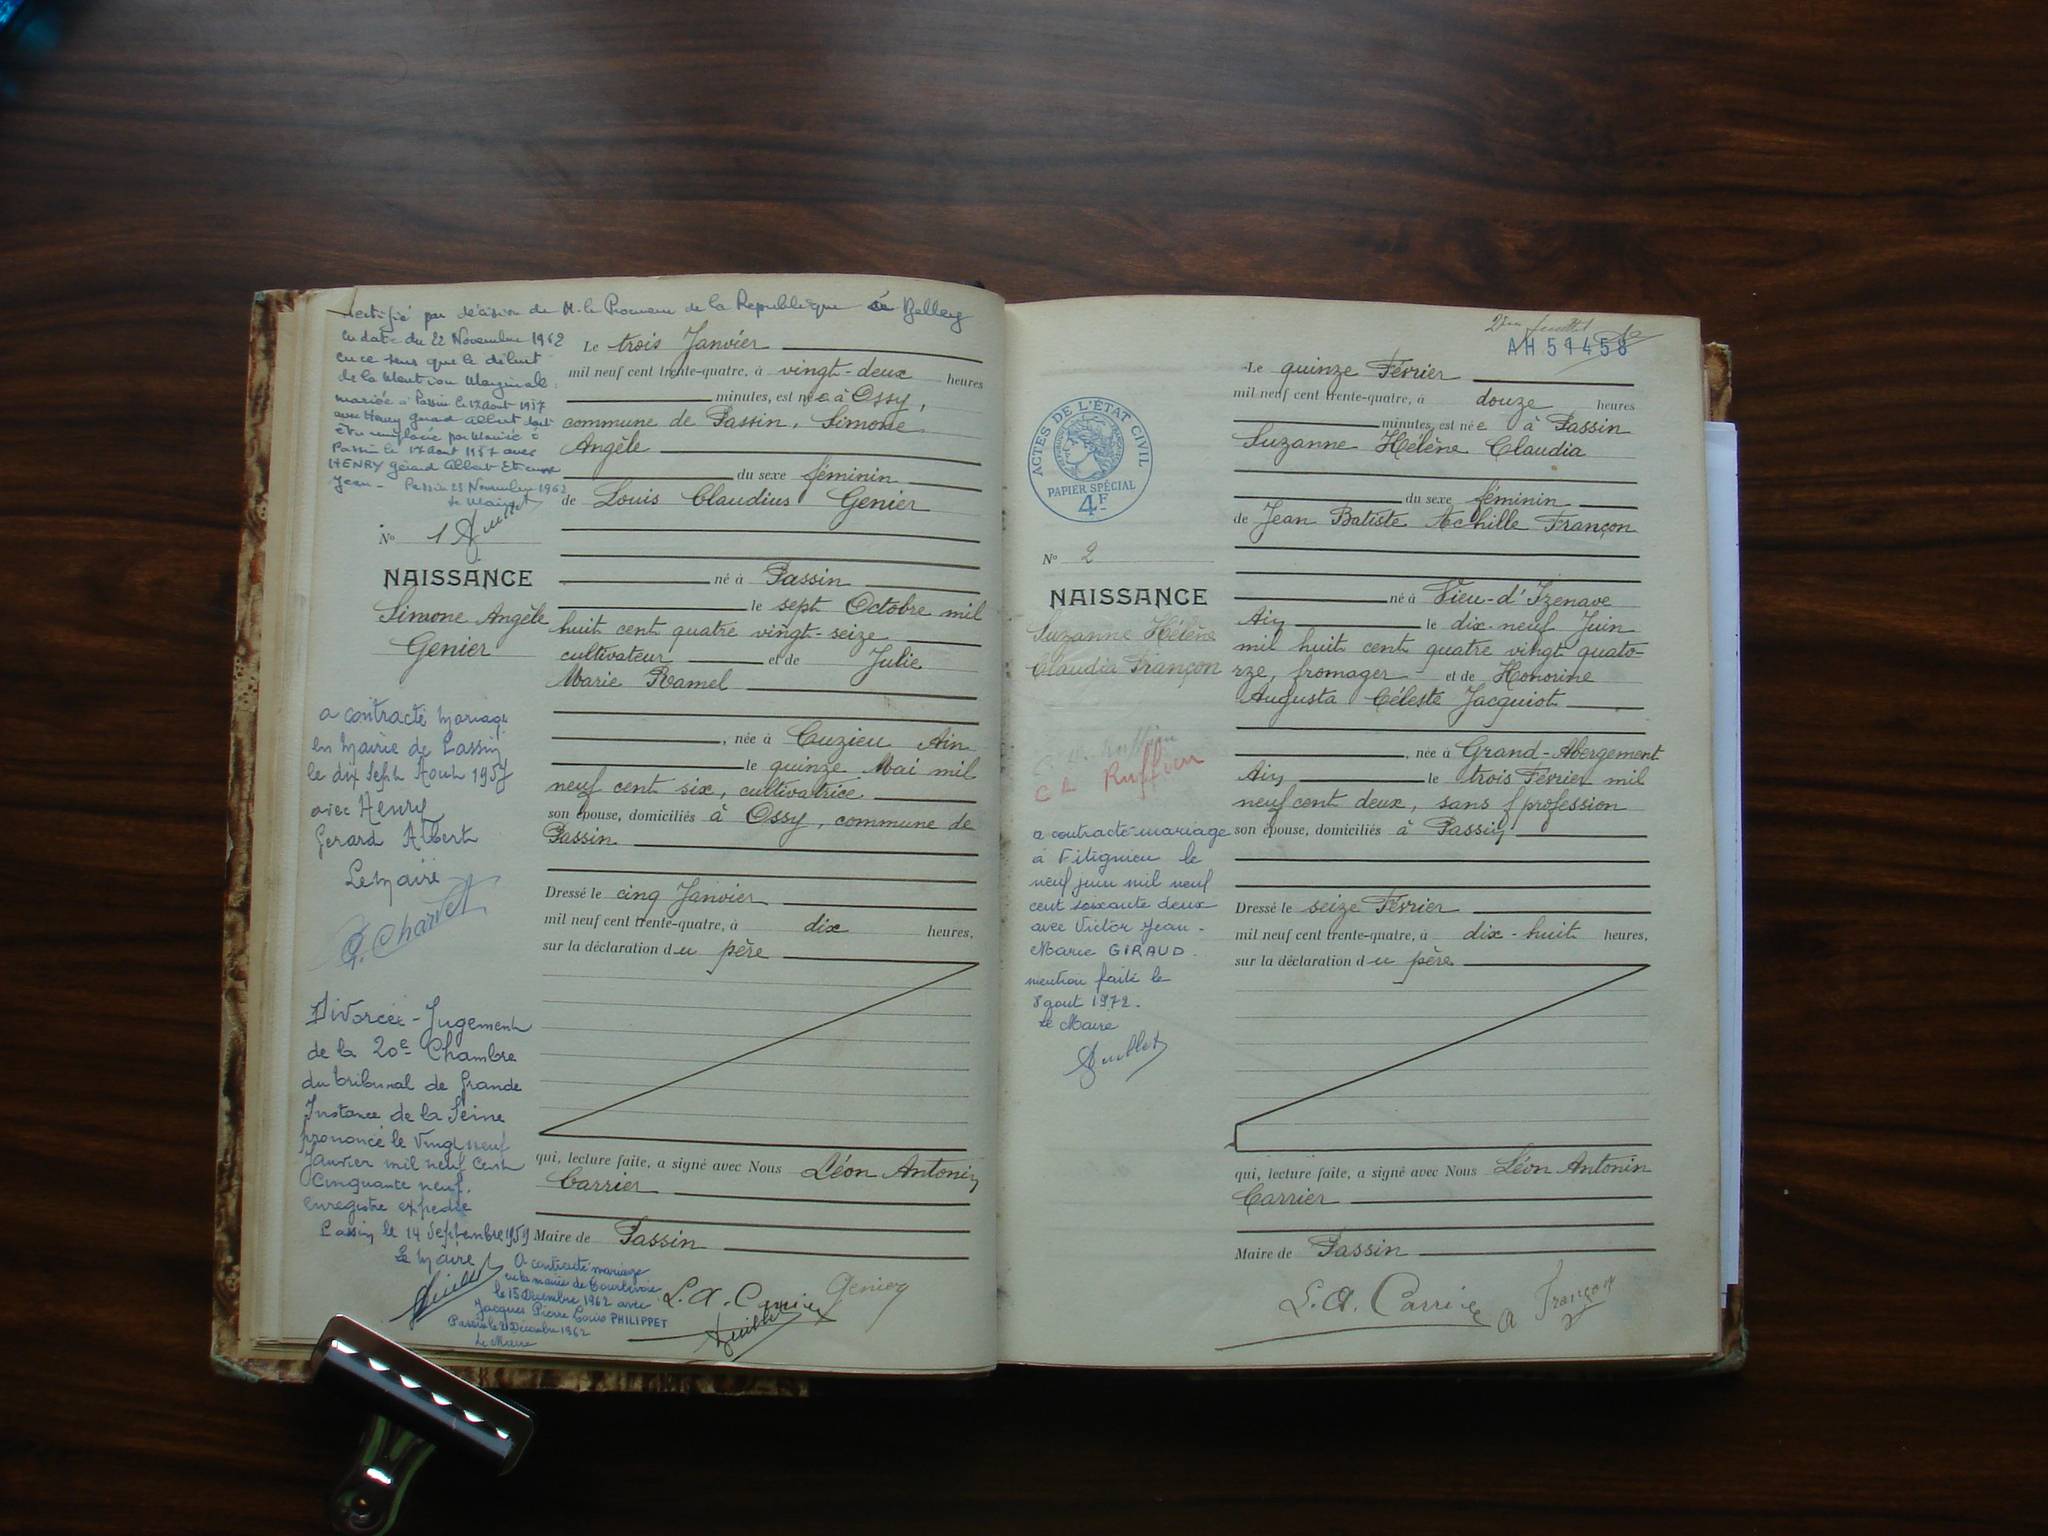 Rectifié par décision de M. le Procureur de la République de Belley
en date du 22 Novembre 1962
en ce sens que le début
de la Mention Marginale
mariée à Passin le 17 août 1957
avec Henry Gérard Albert doit
être remplacée par Mariée à
Passin le 17 août 1957 avec
HENRY Gérard Albert Etienne
Jean - Passin 23 Novembre 1962
Le Maire
N° 1
NAISSANCE
Simone Angèle
Genier
a contracté mariage
en Mairie de Passin
le dix Sept Aout 1957
avec Henry
Gerard Albert
Le Maire
G. Charvet
Divorcée - Jugement
de la 20e Chambre
du tribunal de Grande
Instance de la Seine
prononcé le Vingt neuf
Janvier mil neuf Cent
Cinquante neuf.
enregistre expedie
Passin le 14 Septembre 1959
Le Maire
A contracté mariage
en la mairie de Courbevoie
le 15 Décembre 1962 avec
Jacques Pierre Louis PHILIPPET
Passin le 21 Décembre 1962
Le Maire
Le trois Janvier
mil neuf cent trente-quatre, à vingt-deux heures
minutes, est née à Ossy,
commune de Passin, Simone
Angèle
du sexe féminin
de Louis Claudius Genier
né à Passin
le sept Octobre mil
huit cent quatre vingt-seize
cultivateur et de Julie
Marie Ramel
, née à Cuzieu Ain
le quinze Mai mil
neuf cent six, cultivatrice
son épouse, domiciliés à Ossy, commune de
Passin
Dressé le cinq Janvier
mil neuf cent trente-quatre, à dix heures,
sur la déclaration du père
qui, lecture faite, a signé avec Nous Léon Antonin
Carrier
Maire de Passin
L. A. Carrier Genier
2ème feuillet
AH 51458
ACTES DE L'ÉTAT CIVIL
PAPIER SPÉCIAL
4F
N° 2
NAISSANCE
Suzanne Hélène
Claudia Françon
Ruffieu
a contracté mariage
à Vitignieu le
neuf juin mil neuf
cent soixante deux
avec Victor Jean-
Marie GIRAUD.
mention faite le
8 aout 1972.
Le Maire
Le quinze Février
mil neuf cent trente-quatre, à douze heures
minutes, est née à Passin
Suzanne Hélène Claudia
du sexe féminin
de Jean Batiste Achille Françon
né à Vieu-d'Izenave
Ain le dix-neuf Juin
mil huit cent quatre vingt quato-
rze, fromager et de Honorine
Augusta Céleste Jacquiot
, née à Grand-Abergement
Ain le trois Février mil
neuf cent deux, sans profession
son épouse, domiciliés à Passin
Dressé le seize Février
mil neuf cent trente-quatre, à dix-huit heures,
sur la déclaration du père
qui, lecture faite, a signé avec Nous Léon Antonin
Carrier
Maire de Passin
L. A. Carrier A Françon